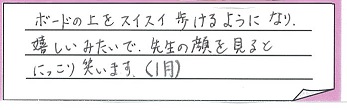 ボードの上をスイスイ歩けるようになり、
嬉しいみたいで、先生の顔を見ると
にっこり笑います。(1月)